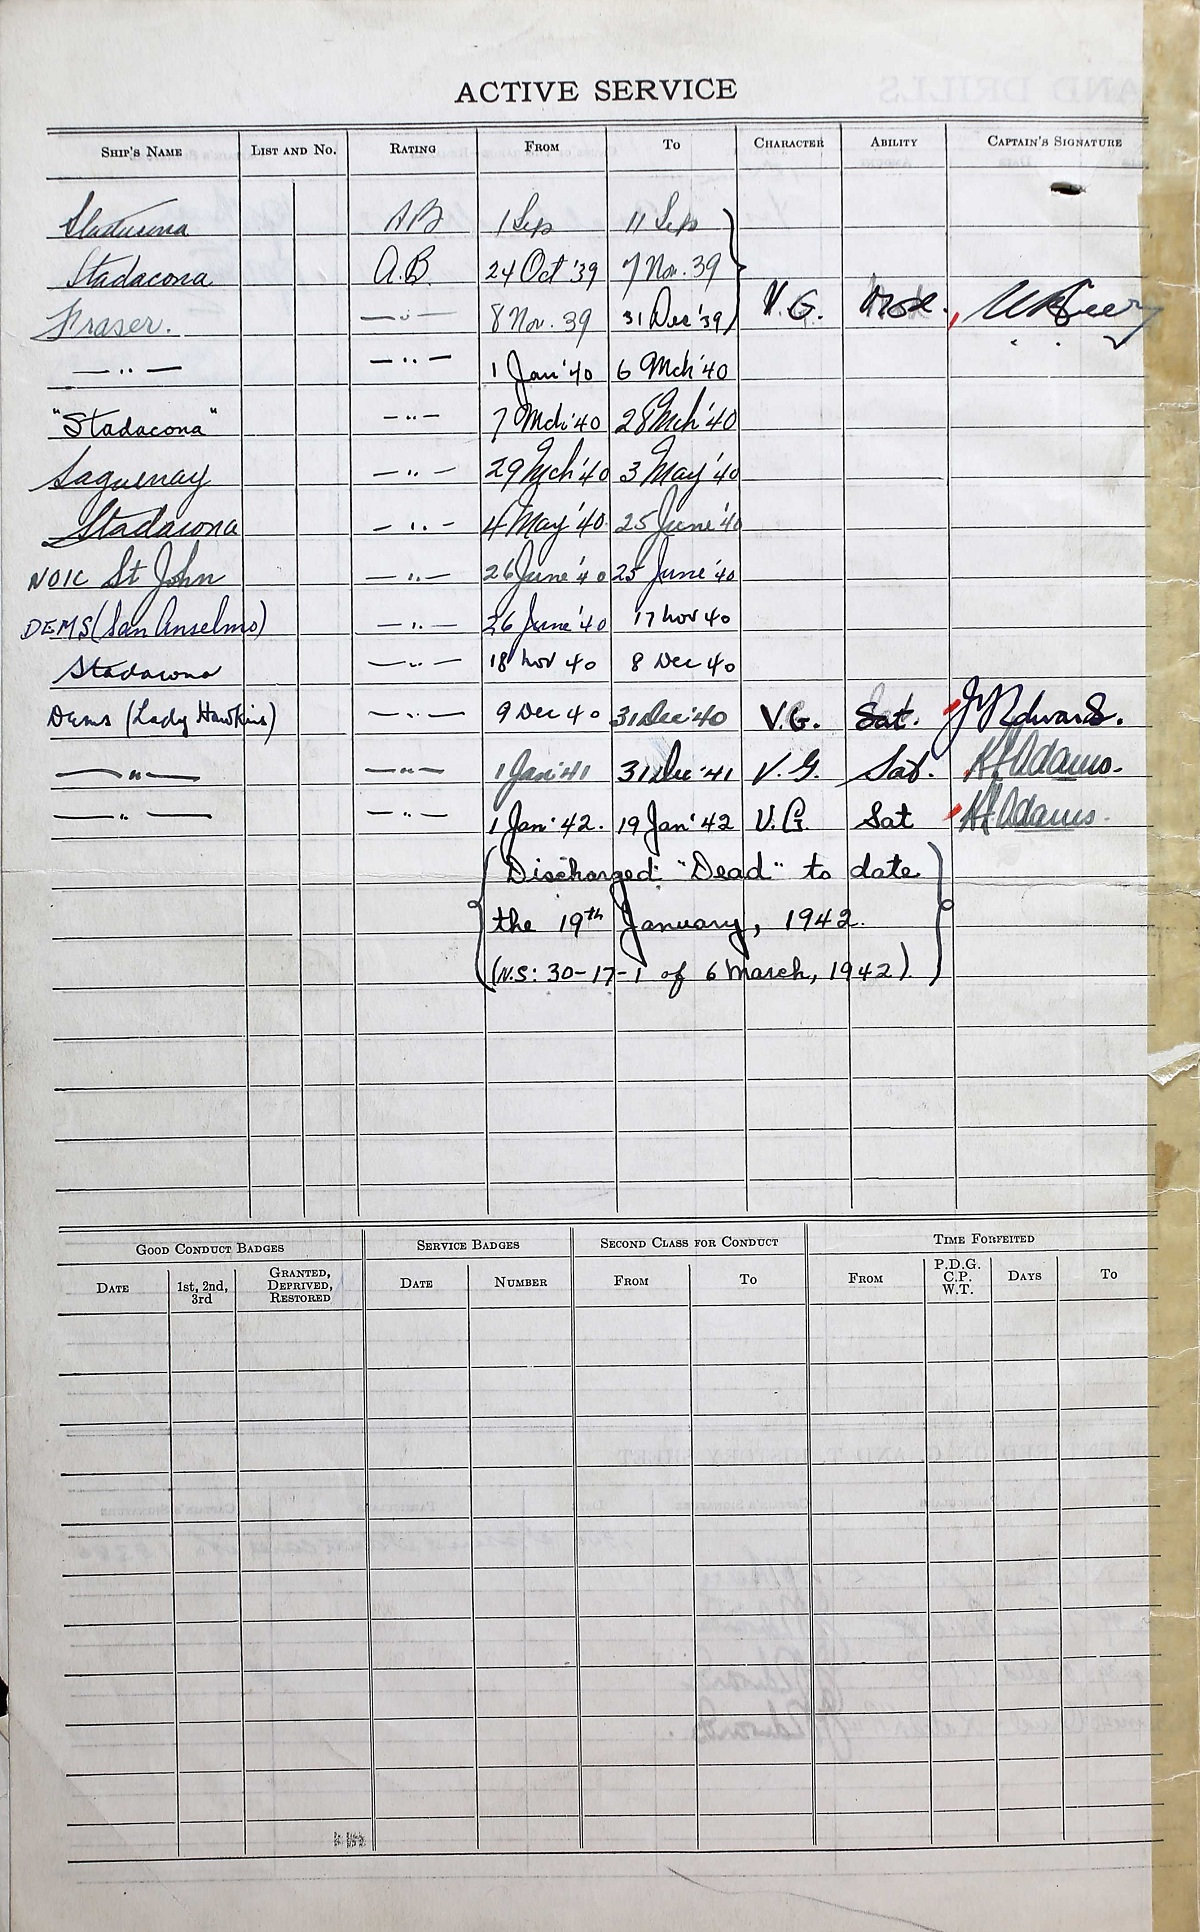 ACTIVE SERVICE
SHIP'S NAME LIST AND NO. RATING FROM TO CHARACTER ABILITY CAPTAIN'S SIGNATURE
Stadacona AB 1 Sep 11 Sep
Stadacona A.B. 24 Oct '39 7 Nov. 39
Fraser. —〃— 8 Nov. 39 31 Dec '39 V.G.
—〃— —〃— 1 Jan '40 6 Mch '40
"Stadacona" —〃— 7 Mch '40 28 Mch '40
Saguenay —〃— 29 Mch '40 3 May '40
Stadacona —〃— 4 May '40 25 June '40
NOIC St John —〃— 26 June '40 25 June '40
DEMS (San Anselmo) —〃— 26 June '40 17 Nov 40
Stadacona —〃— 18 Nov 40 8 Dec 40
Dems (Lady Hawkins) —〃— 9 Dec 40 31 Dec '40 V.G. Sat. Edwards.
—〃— —〃— 1 Jan '41 31 Dec '41 V.G. Sat. Adams.
—〃— —〃— 1 Jan '42. 19 Jan '42 V.G. Sat Adams.
Discharged "Dead" to date
the 19th January, 1942.
(N.S: 30-17-1 of 6 March, 1942).
GOOD CONDUCT BADGES SERVICE BADGES SECOND CLASS FOR CONDUCT TIME FORFEITED
DATE 1st, 2nd, 3rd GRANTED, DEPRIVED, RESTORED DATE NUMBER FROM TO FROM P.D.G. C.P. W.T. DAYS TO